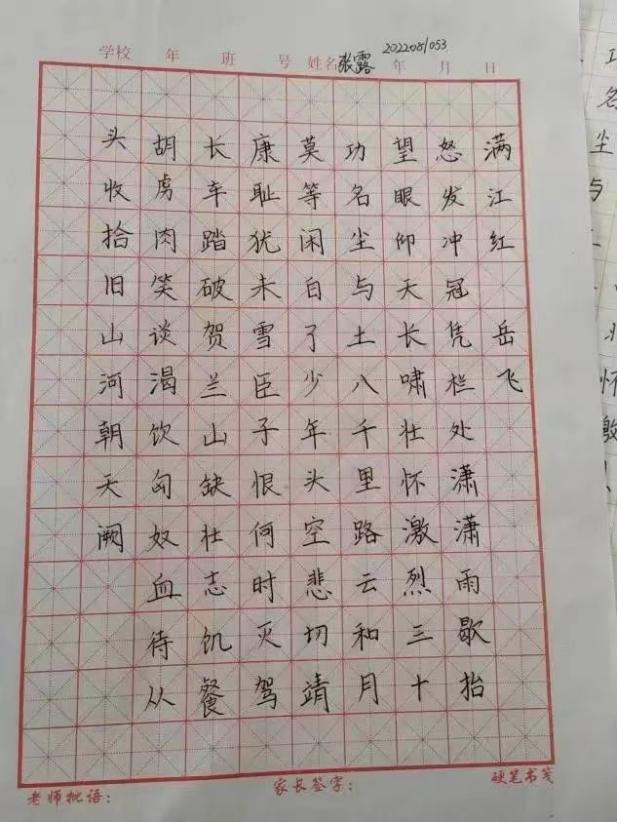 2022081053
学校 年 班 号 姓名 张露 年 月 日
满江红 岳飞
怒发冲冠凭栏处潇潇雨歇抬
望眼仰天长啸壮怀激烈三十
功名尘与土八千里路云和月
莫等闲白了少年头空悲切靖
康耻犹未雪臣子恨何时灭驾
长车踏破贺兰山缺壮志饥餐
胡虏肉笑谈渴饮匈奴血待从
头收拾旧山河朝天阙
老师批语： 家长签字： 硬笔书笺